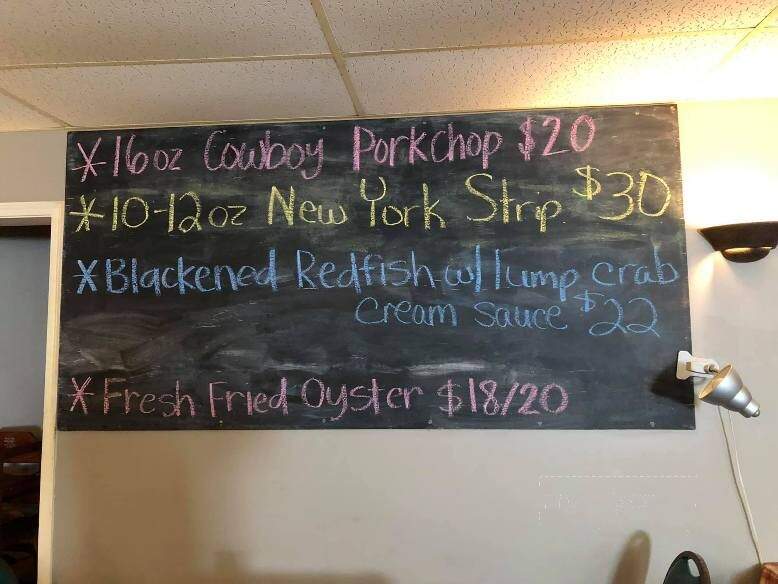 * 16oz Cowboy Porkchop $20
* 10-12oz New York Strip $30
* Blackened Redfish w/ lump crab
cream sauce $22
* Fresh Fried Oyster $18/20